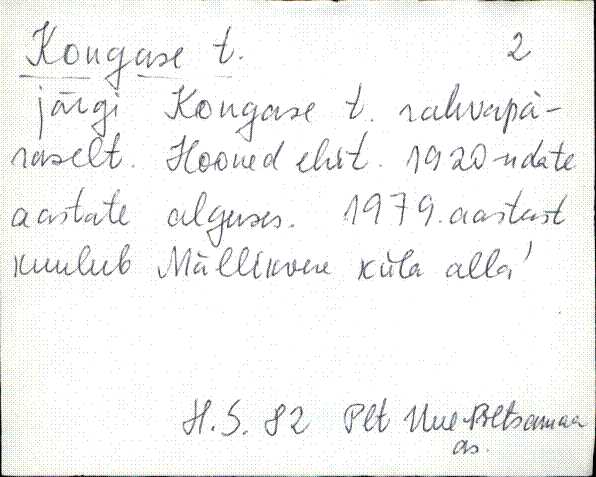 Kongase t. 2
järgi Kongase t. rahvapä-
raselt. Hooned ehit. 1920-ndate
aastate alguses. 1979. aastast
kuulub Mällikvere küla alla'
H.S. 82 Plt Uue-Põltsamaa
as.